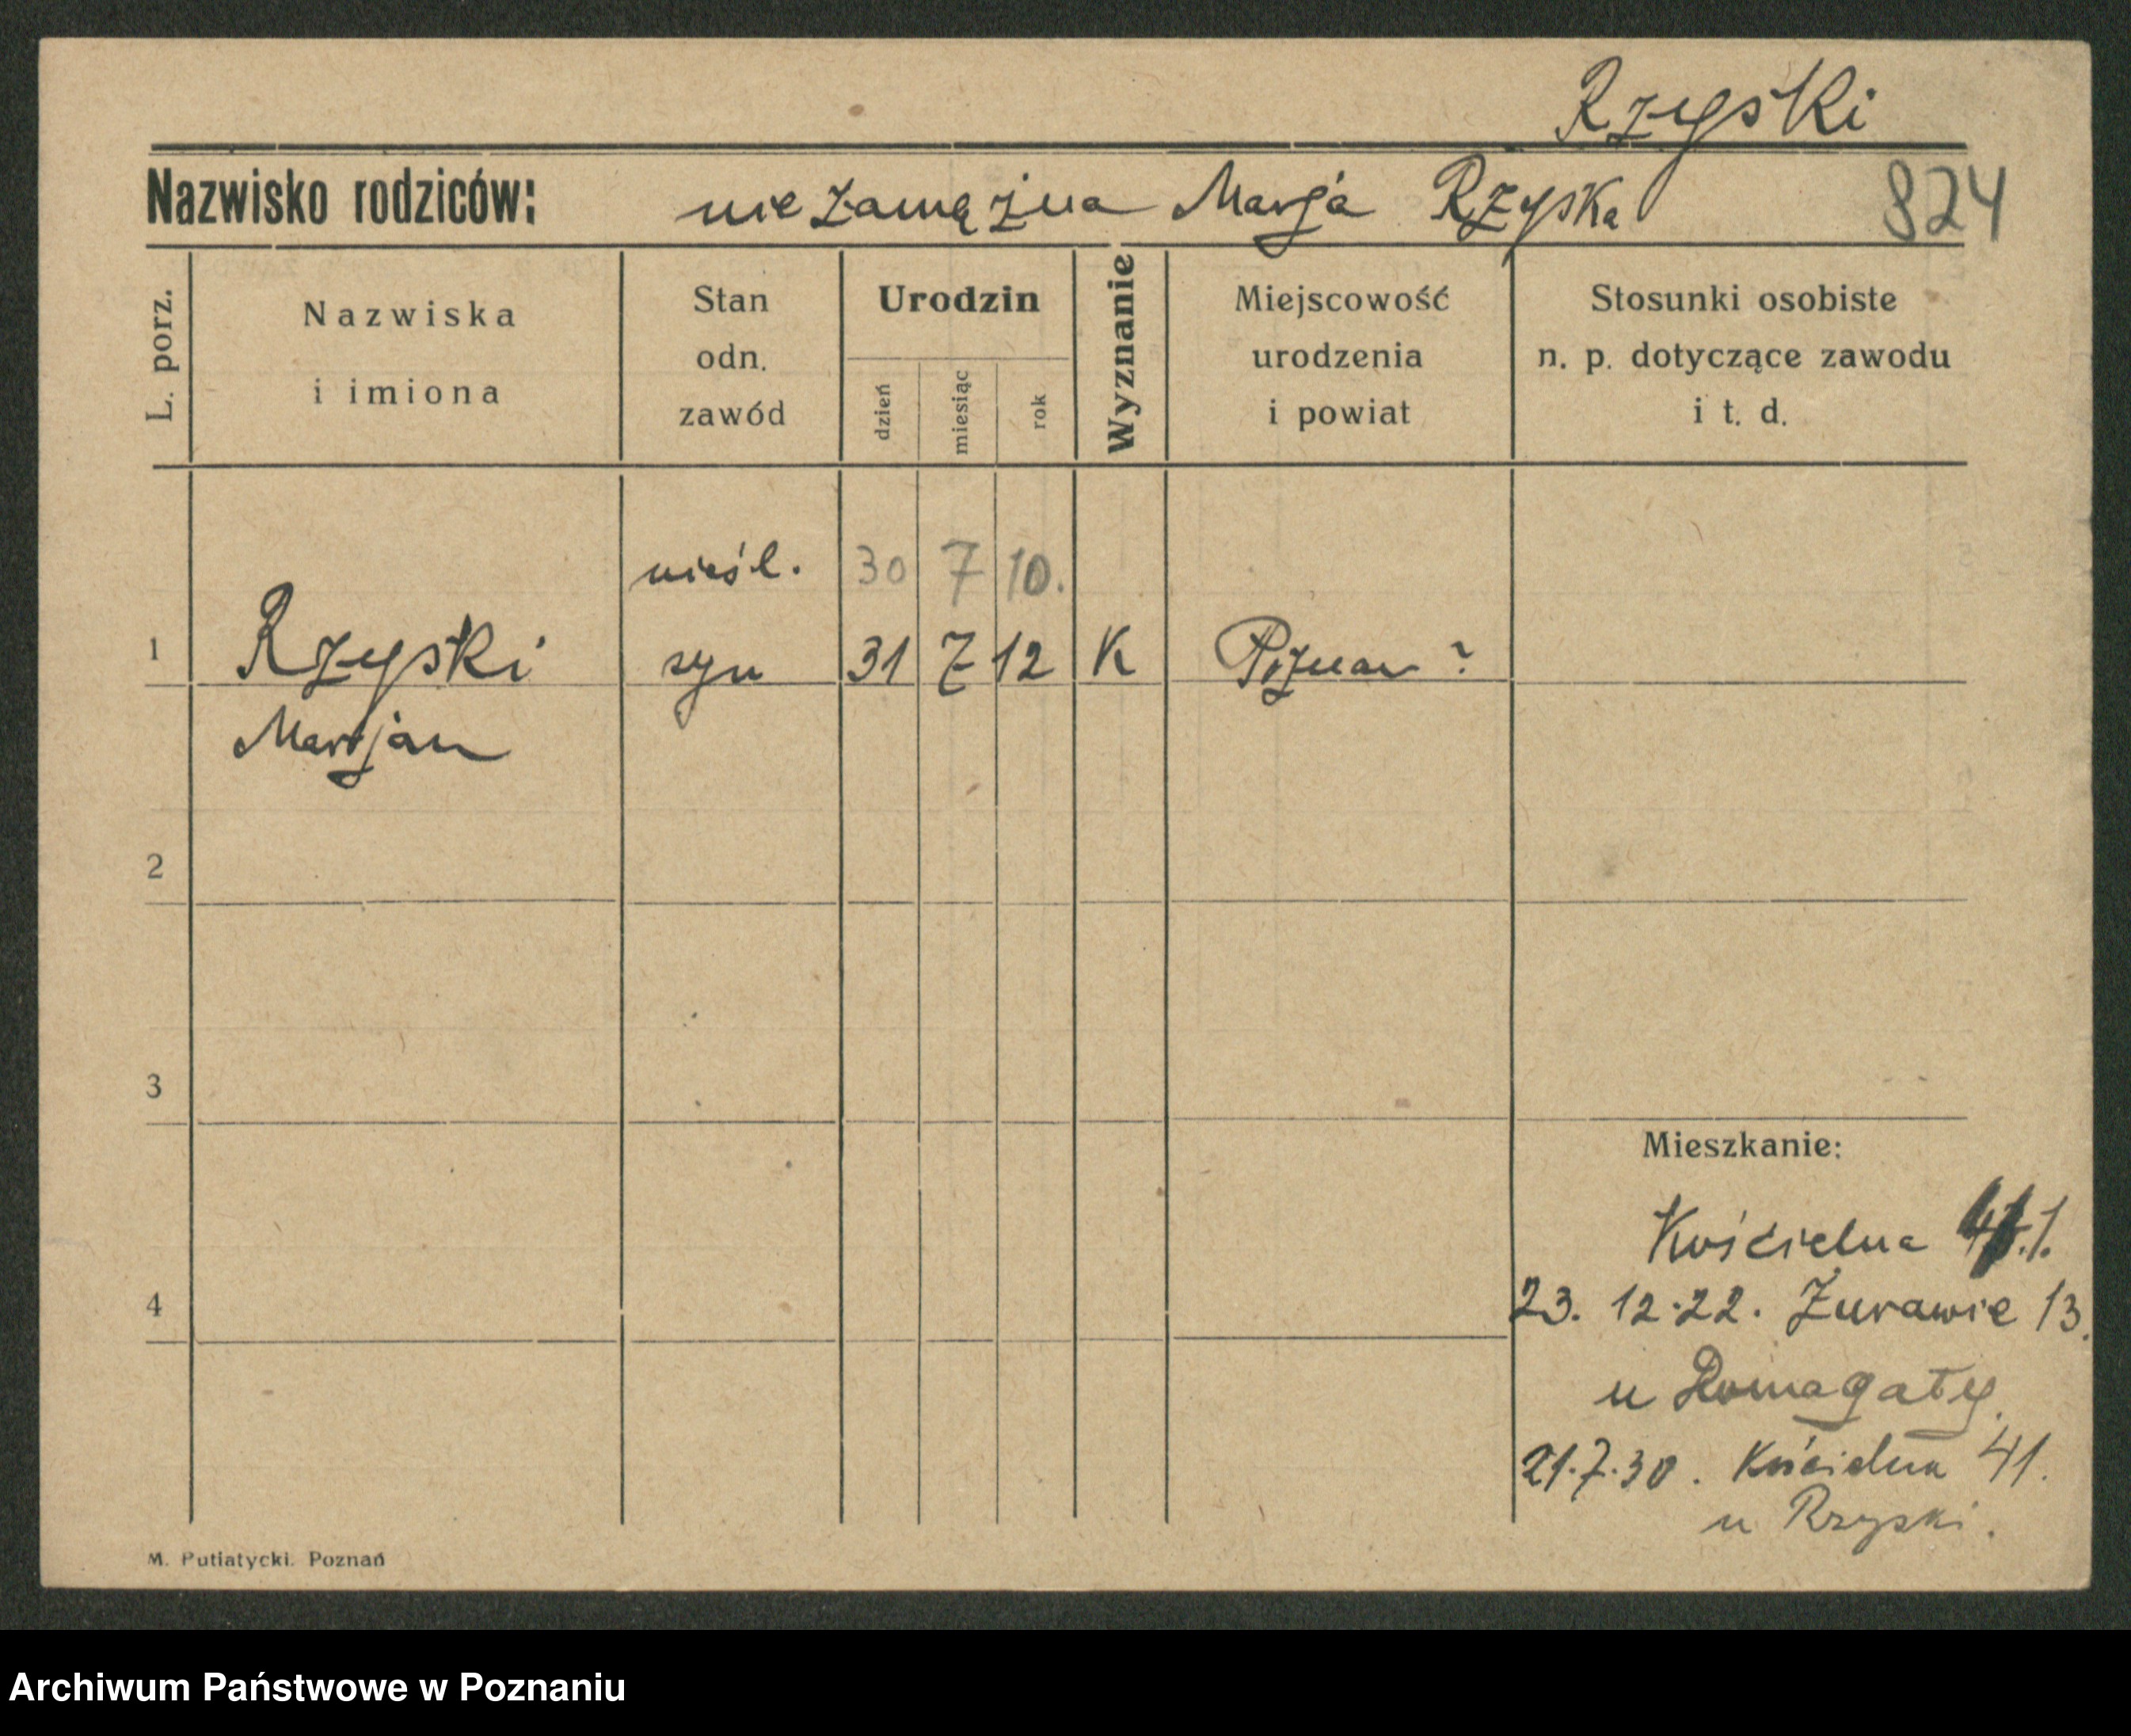 Rzyski
Nazwisko rodziców: niezamężna Marja Rzyska 824
L. porz.
Nazwiska
i imiona
Stan
odn.
zawód
Urodzin
dzień
miesiąc
rok
Wyznanie
Miejscowość
urodzenia
i powiat
Stosunki osobiste
n. p. dotyczące zawodu
i t. d.
nieśl. 30 7 10.
1 Rzyski syn 31 7 12 K Poznan ?
Marjan
2
3
Mieszkanie:
Kościelna
4 23. 12.22. Żurawie 13.
u Domagały
21.7.30. Kościelna 41.
u Rzyski.
M. Putiatycki. Poznań
Archiwum Państwowe w Poznaniu